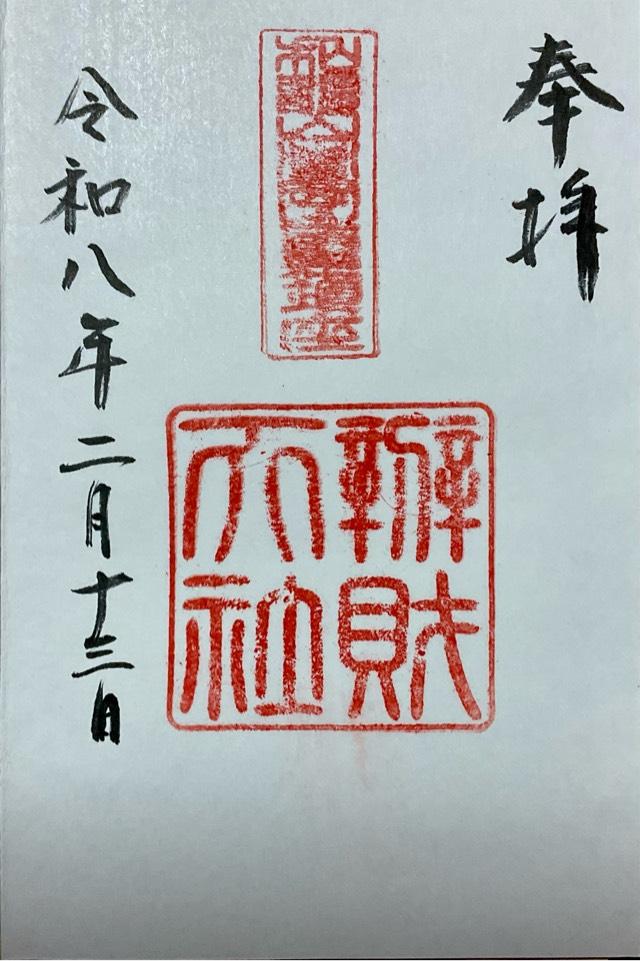 奉拝
辨財
天社
令和八年二月十三日